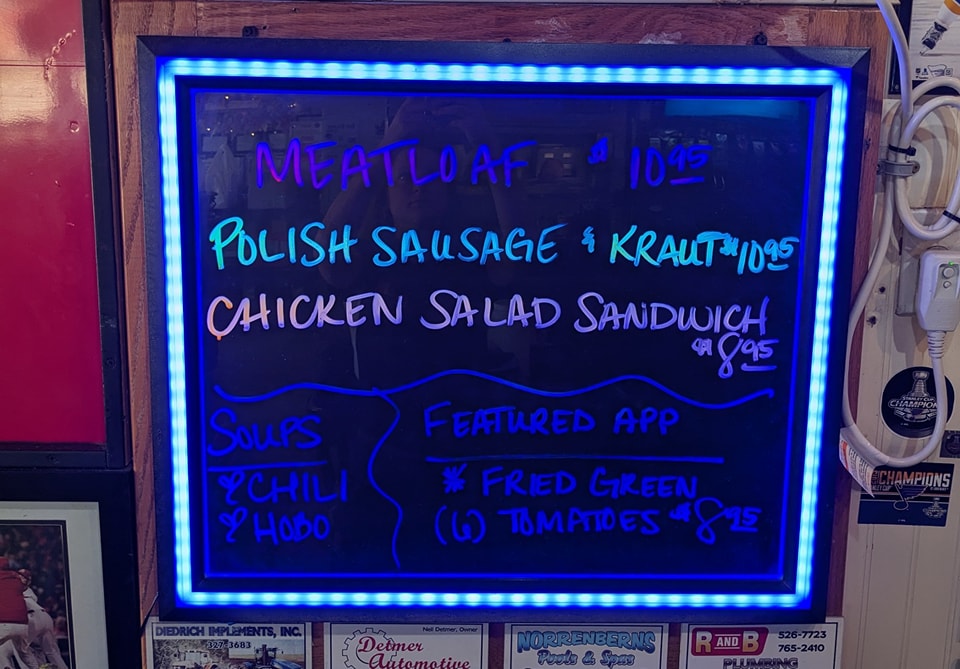 MEATLOAF $10.95
POLISH SAUSAGE & KRAUT $10.95
CHICKEN SALAD SANDWICH
$8.95
SOUPS
CHILI
HOBO
FEATURED APP
* FRIED GREEN
(6) TOMATOES $8.95
STANLEY CUP
CHAMPIONS
CHAMPIONS
DIEDRICH IMPLEMENTS, INC.
327-3683
Neil Detmer, Owner
Detmer
Automotive
NORRENBERNS
Pools & Spas
R AND B
PLUMBING
526-7723
765-2410